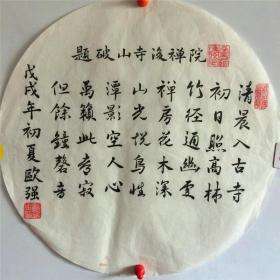 題破山寺後禪院
清晨入古寺
初日照高林
竹徑通幽處
禪房花木深
山光悦鳥性
潭影空人心
萬籟此寂
但餘鐘磬音
戊戌年初夏歐强